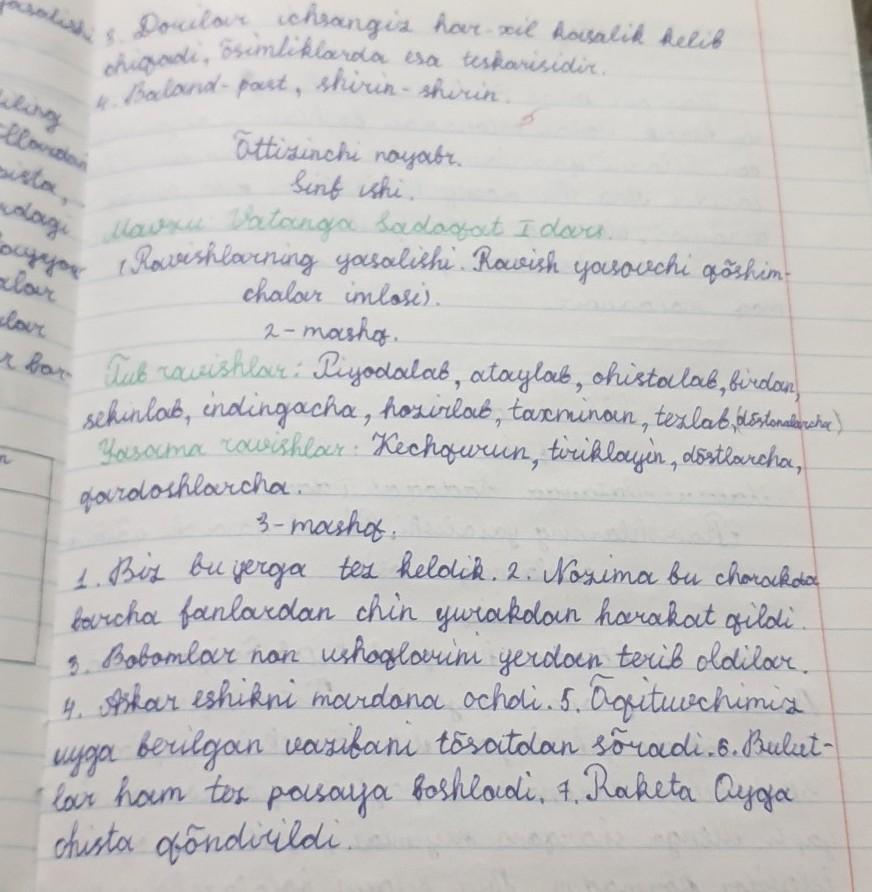 3. Dorilar ichsangiz har-xil kasalik kelib
chiqadi, õsimliklarda esa teskarisidir.
4. Baland-past, shirin-shirin.
Õttizinchi noyabr.
Sinf ishi.
Mavzu Vatanga Sadoqat I dars.
(Ravishlarning yasalishi. Ravish yasovchi qõshim-
chalar imlosi).
2-mashq.
Tub ravishlar: Piyodalab, ataylab, ohistalab, birdan,
sekinlab, indingacha, hozirlab, taxminan, tezlab, (dõstonalarcha)
Yasama ravishlar: Kechqurun, tiriklayin, dõstlarcha,
qardoshlarcha.
3-mashq.
1. Biz bu yerga tez keldik. 2. Nozima bu chorakda
barcha fanlardan chin yurakdan harakat qildi.
3. Bobomlar non ushoqlarini yerdan terib oldilar.
4. Askar eshikni mardona ochdi. 5. Õqituvchimiz
uyga berilgan vazifani tõsatdan sõradi. 6. Bulut-
lar ham tez pasaya boshladi. 7. Raketa Oyga
ohista qõndirildi.
yasalishi
iling
llardan
ista,
rdagi
lar
r bar-